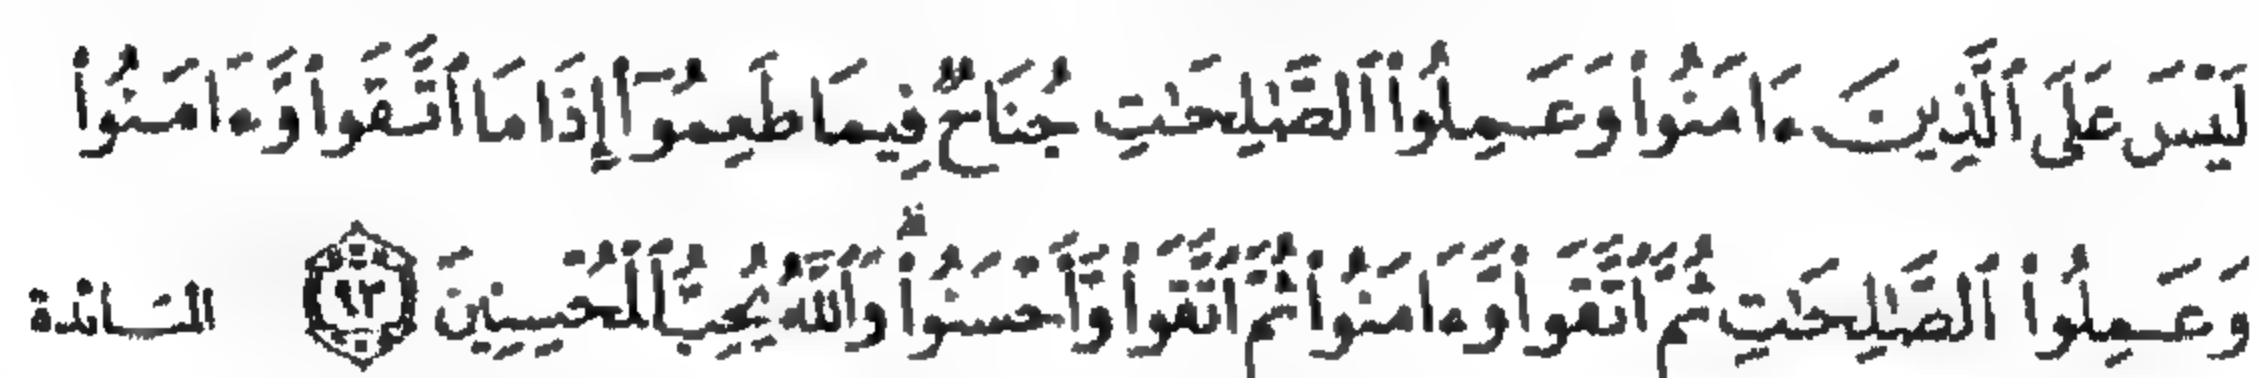 لَيْسَ عَلَى ٱلَّذِينَ ءَامَنُواْ وَعَمِلُواْ ٱلصَّٰلِحَٰتِ جُنَاحٌ فِيمَا طَعِمُوٓاْ إِذَا مَا ٱتَّقَواْ وَّءَامَنُواْ
وَعَمِلُواْ ٱلصَّٰلِحَٰتِ ثُمَّ ٱتَّقَواْ وَّءَامَنُواْ ثُمَّ ٱتَّقَواْ وَّأَحْسَنُواْۗ وَٱللَّهُ يُحِبُّ ٱلْمُحْسِنِينَ ٩٣ المَائدة